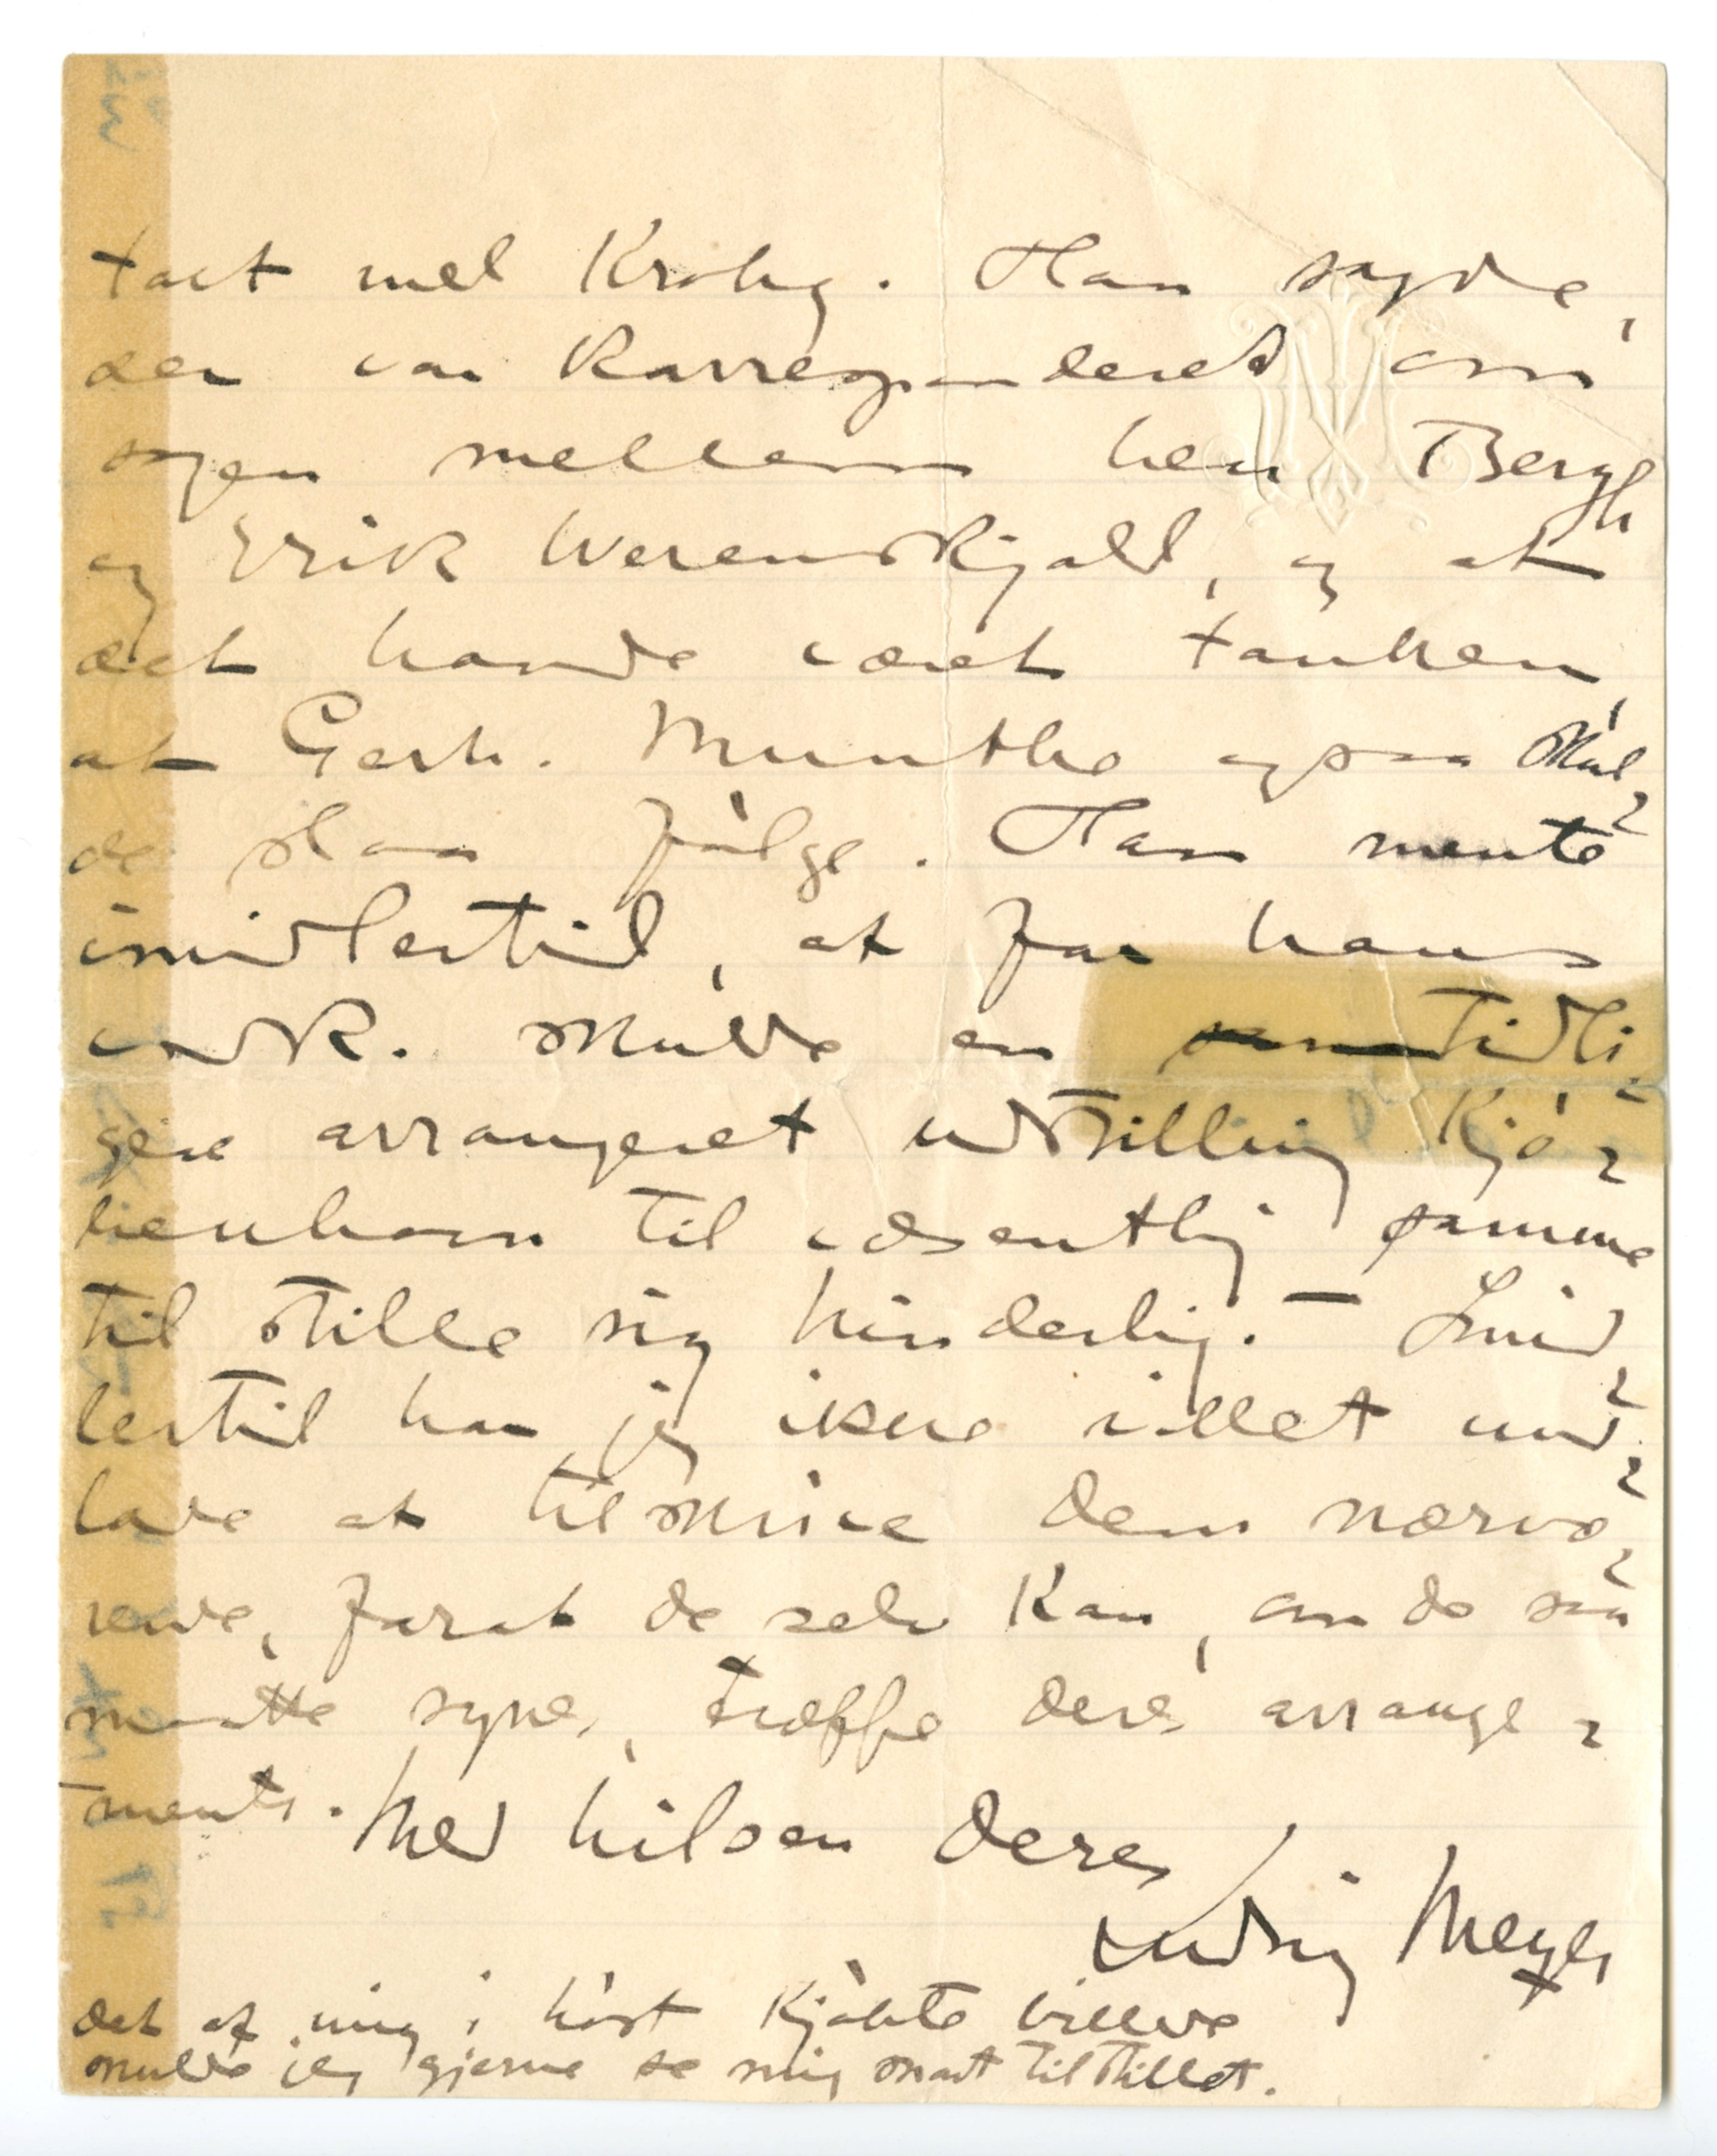 talt med Krohg. Han sagde,
der var korresponderet om
sagen mellem herr Bergh
og Erik Werenskjold, og at
det havde været tanken,
at Gerh. Munthe ogsaa skul-
de slaa følge. Han mente
imidlertid, at for hans
vedk. skulde en tidli-
gere arrangeret udstilling Kjø-
benhavn til væsentlig samme
tid stille sig hinderlig. – Imid-
lertid har jeg ikke villet und-
lade at tilskrive dem nærvæ-
rende, forat de selv kan, om de saa
maatte synes, træffe deres arrange-
ments. Med hilsen Deres
Ludvig Meyer
det af mig i høst kjøbte billede
skulde jeg gjerne se mig snart tilstillet.